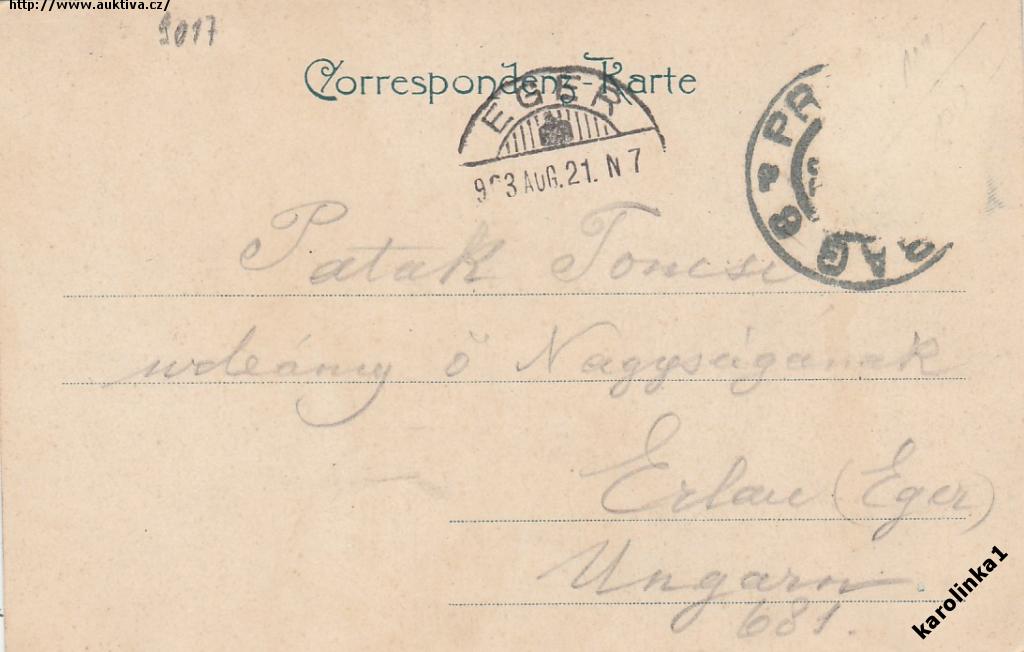 http://www.auktiva.cz/
9017
Correspondenz-Karte
EGER
903 AUG. 21. N 7
PRAG
8
Patak Toncsi
urleány ő Nagyságának
Erlau (Eger)
Ungarn
681.
karolinka1